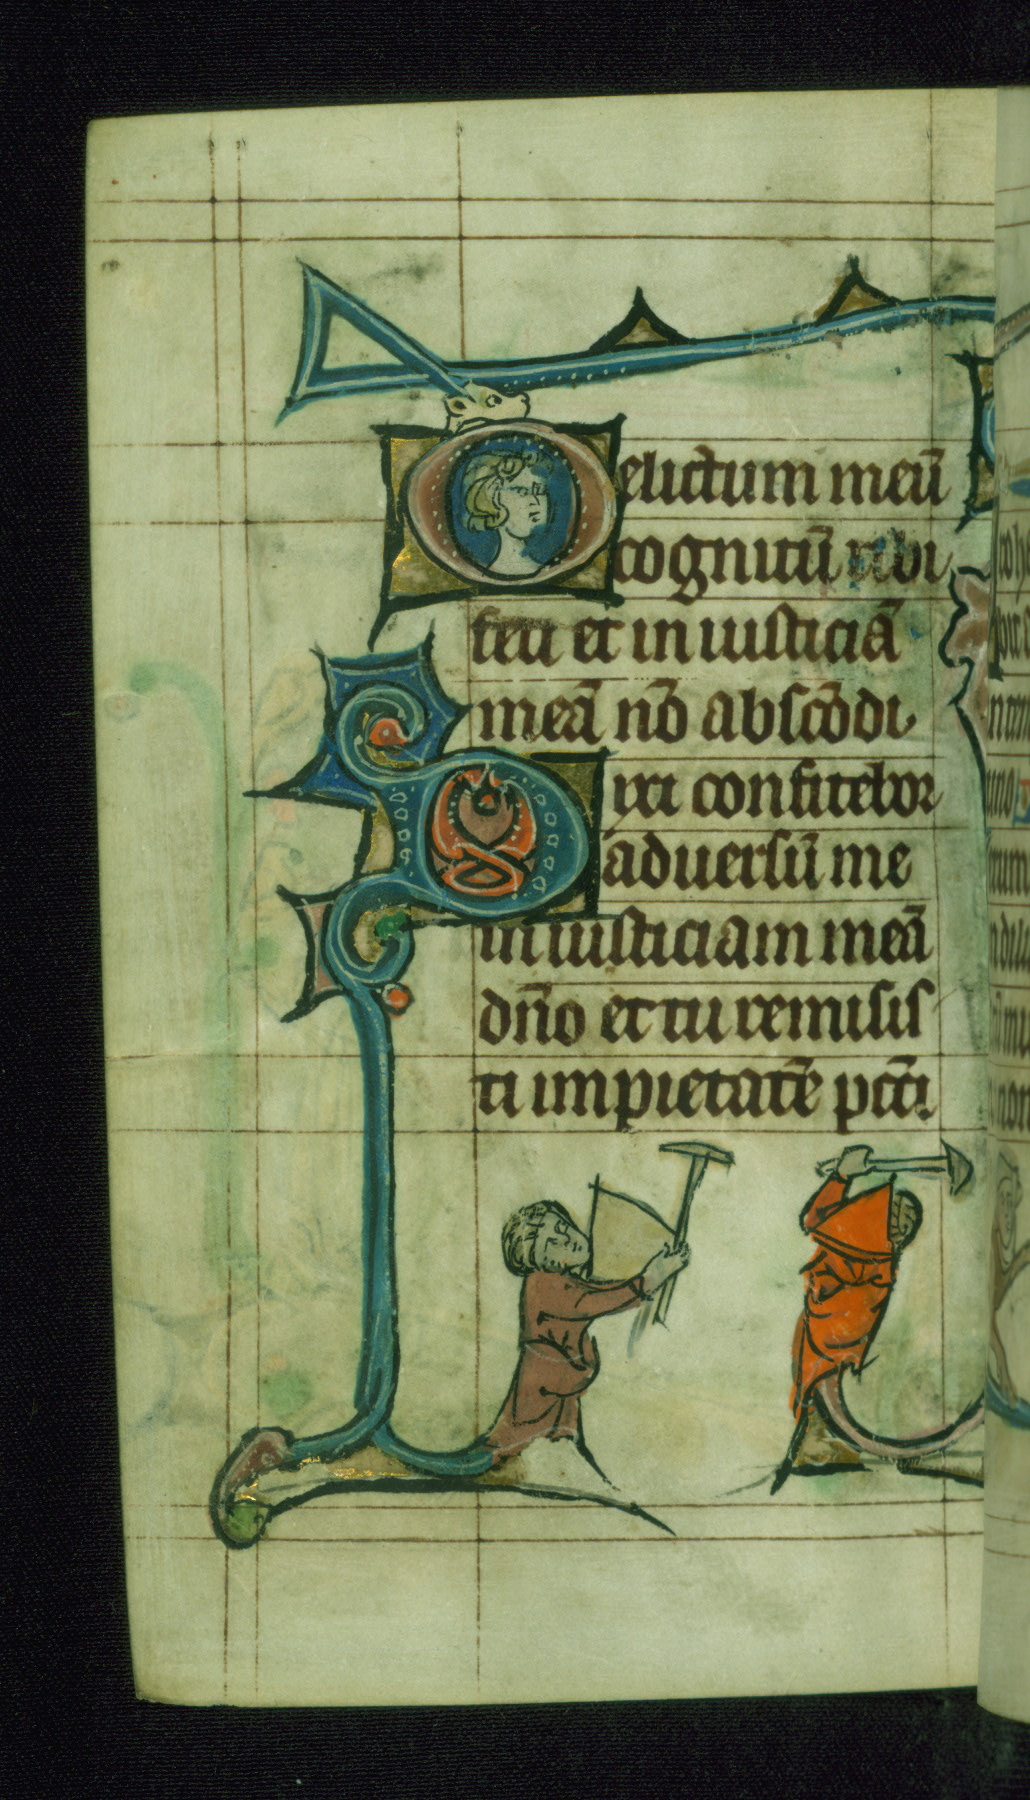 Delictum meū
cognitū tibi
feci et in iusticiā
meā nō abscōdi
Dixi confitebor
aduersū me
in iusticiam meā
dño et tu remisis
ti impietatē pcc̄ti